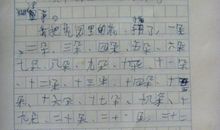 我把花园里的花 摘了 一朵
、二朵、三朵、四朵、五朵、六朵
七朵、八朵、九朵、十朵、十一朵
、十二朵、十三朵、十四朵、十五
朵、十六朵、十七朵、十八朵、十
九朵、二十朵、二十一朵、二十二